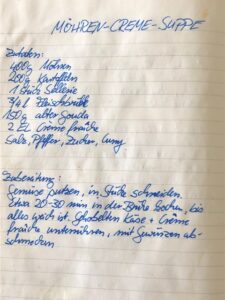 MÖHREN-CREME-SUPPE
Zutaten:
400g Möhren
200g Kartoffeln
1 Stück Sellerie
3/4 l Fleischbrühe
150g alter Gouda
2 EL Creme fraîche
Salz, Pfeffer, Zucker, Curry
Zubereitung:
Gemüse putzen, in Stücke schneiden
Etwa 20-30 min in der Brühe kochen, bis
alles weich ist. Gehobelten Käse + Crème
fraîche unterrühren, mit Gewürzen ab-
schmecken